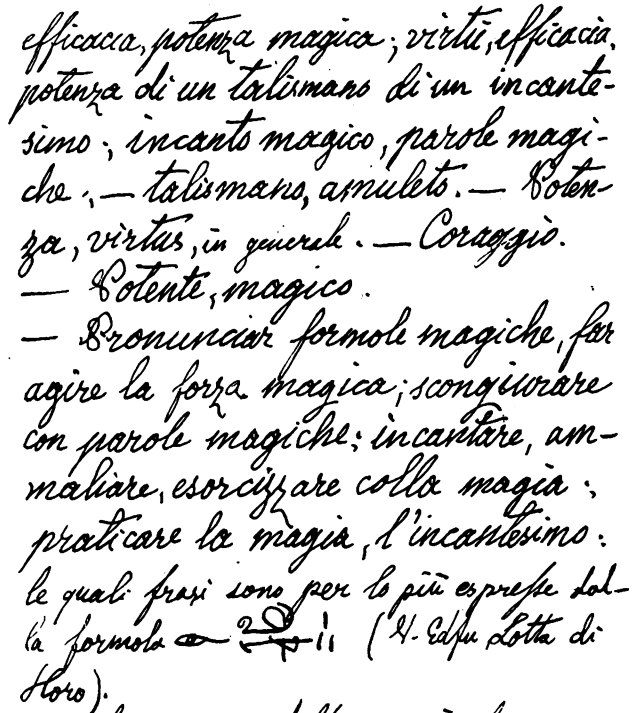 efficacia, potenza magica; virtù, efficacia,
potenza di un talismano di un incante-
simo; incanto magico, parole magi-
che; — talismano, amuleto. — Poten-
za, virtus, in generale. — Coraggio.
— Potente, magico.
— Pronunciar formole magiche, far
agire la forza magica; scongiurare
con parole magiche; incantare, am-
maliare, esorcizzare colla magia;
praticare la magia, l'incantesimo:
le quali frasi sono per lo più espresse dal-
la formola ( Edfu Lotta di
Horo).